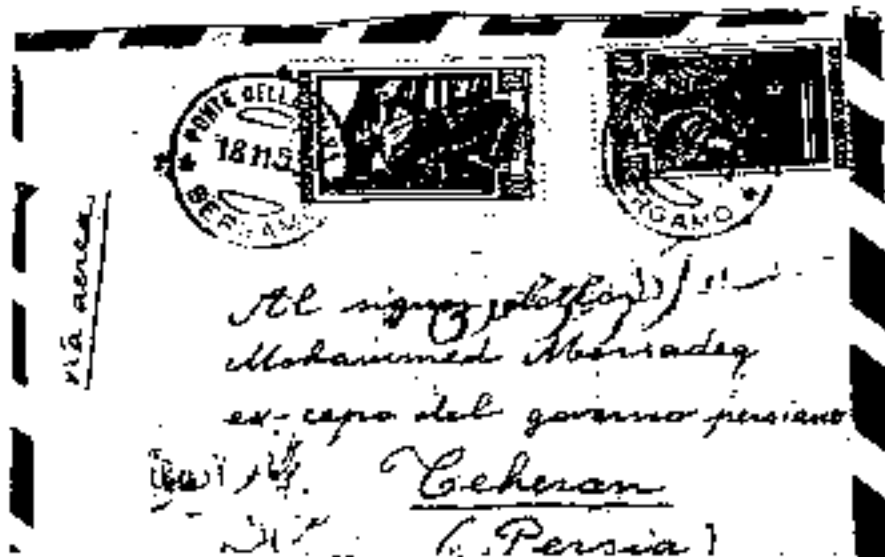 PONTE DELL
18 11 5
BERGAMO
ERGAMO
via aerea
Al signor dottor
Mohammed Mossadeq
ex-capo del governo persiano
Teheran
(Persia)